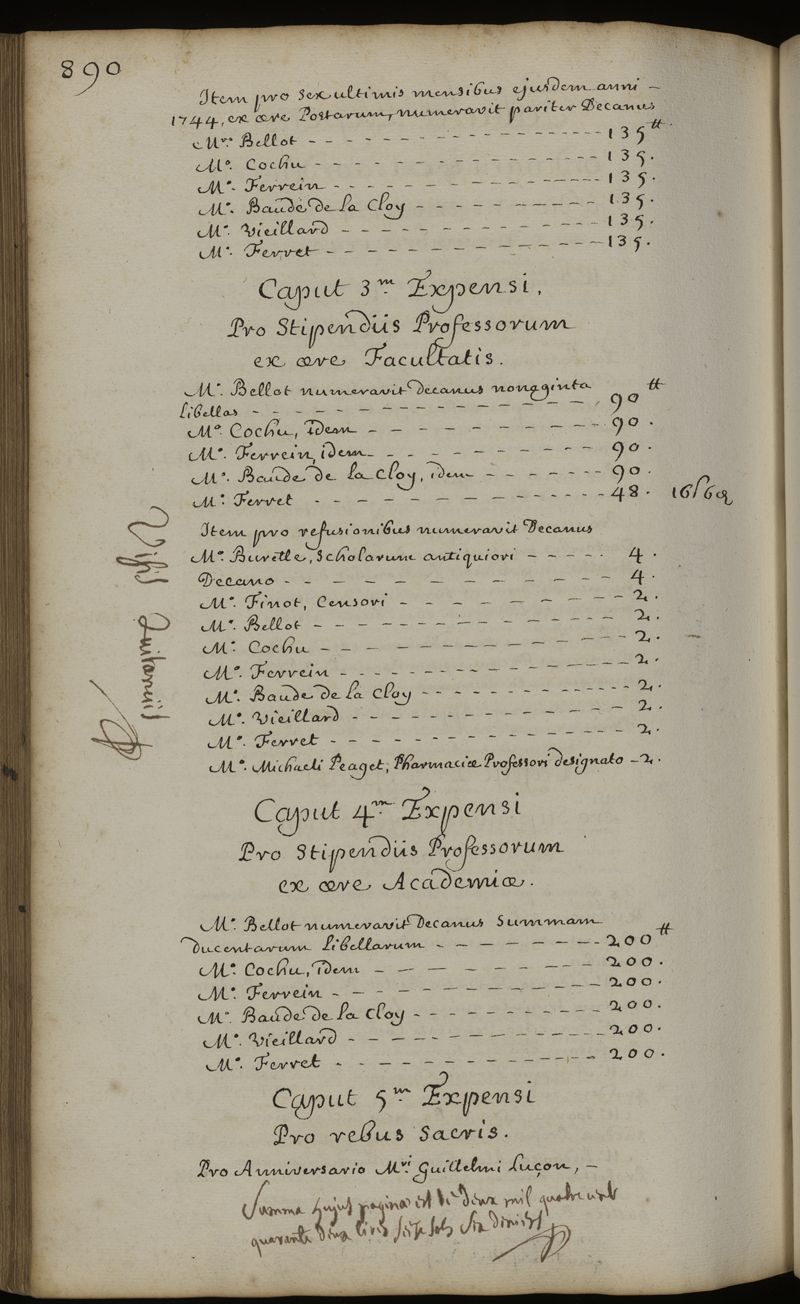 890
Item pro sex ultimis mensibus ejusdem anni –
1744, ex ære Postarum, numeravit pariter Decanus
M.ro Bellot - - - - - - - - - - - - - - - 135 ₶
M.o Cochu - - - - - - - - - - - - - - - 135.
M.o Ferrein - - - - - - - - - - - - - - 135.
M.o Baude de la Cloy - - - - - - - - - 135.
M.o Vieillard - - - - - - - - - - - - - 135.
M.o Ferret - - - - - - - - - - - - - - 135.
Caput 3.m Expensi,
Pro Stipendiis Professorum
ex ære Facultatis.
M.o Bellot numeravit Decanus nonaginta
libellas - - - - - - - - - - - - - - 90 ₶
M.o Cochu, idem - - - - - - - - - - 90.
M.o Ferrein, idem - - - - - - - - - 90.
M.o Baude de la Cloy, idem - - - - - - 90.
M.o Ferret - - - - - - - - - - - - - 48. 16ſ 6d
Item pro refusionibus numeravit Decanus
M.o Burette, Scholarum antiquiori - - - - - 4.
Decano - - - - - - - - - - - - - 4.
M.o Finot, Censori - - - - - - - - - 2.
M.o Bellot - - - - - - - - - - - - - 2.
M.o Cochu - - - - - - - - - - - - 2.
M.o Ferrein - - - - - - - - - - - - 2.
M.o Baude de la Cloy - - - - - - - - - 2.
M.o Vieillard - - - - - - - - - - - 2.
M.o Ferret - - - - - - - - - - - - 2.
M.o Michaeli Peaget, Pharmaciæ Professori designato - 2.
Caput 4.m Expensi
Pro Stipendiis Professorum
ex ære Academiæ.
M.o Bellot numeravit Decanus Summam
ducentarum libellarum - - - - - - - 200 ₶
M.o Cochu, idem - - - - - - - - - 200.
M.o Ferrein - - - - - - - - - - - - 200.
M.o Baude de la Cloy - - - - - - - - - 200.
M.o Vieillard - - - - - - - - - - - 200.
M.o Ferret - - - - - - - - - - - - 200.
Caput 5.m Expensi
Pro rebus Sacris.
Pro Anniversario M.ri Guillelmi Luçon, –
Summa hujus paginæ est de deux mil quatre cent
quarante deux livres seize sols six deniers